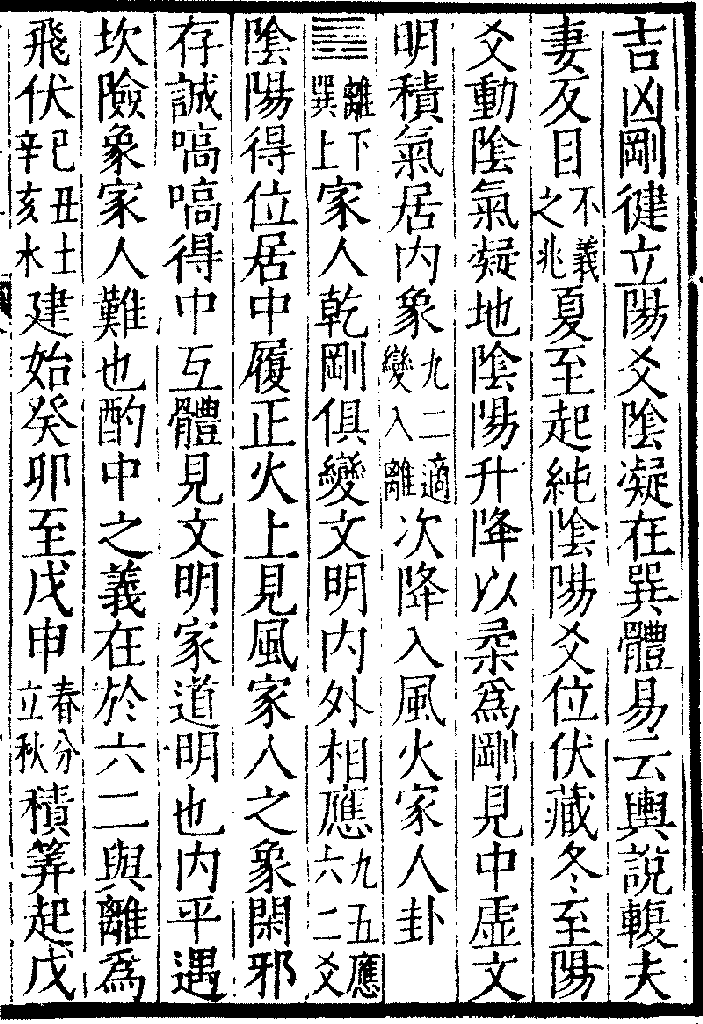 吉凶剛健立陽爻陰凝在巽體易云輿說輹夫
妻反目不義之兆夏至起純陰陽爻位伏藏冬至陽
爻動陰氣凝地陰陽升降以柔爲剛見中虛文
明積氣居内象九二適變入離次降入風火家人卦
䷤離下巽上家人乾剛俱變文明内外相應九五應六二爻
陰陽得位居中履正火上見風家人之象閑邪
存誠嗃嗃得中互體見文明家道明也内平遇
坎險象家人難也酌中之義在於六二與離爲
飛伏己丑土辛亥水建始癸卯至戊申春分立秋積筭起戊